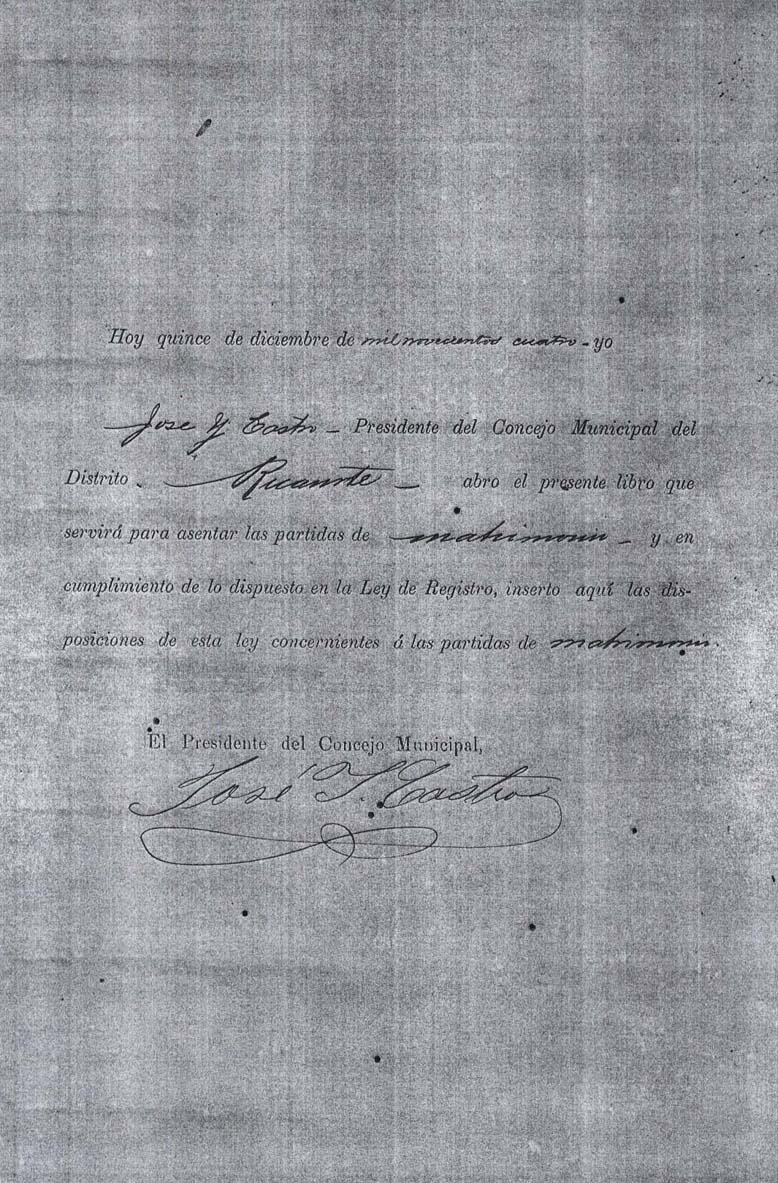 Hoy quince de diciembre de mil novecientos cuatro - yo
Jose Y Castro - Presidente del Concejo Municipal del
Distrito Ricaurte - abro el presente libro que
servirá para asentar las partidas de matrimonio - y en
cumplimiento de lo dispuesto en la Ley de Registro, inserto aquí las dis-
posiciones de esta ley concernientes á las partidas de matrimonio.
El Presidente del Concejo Municipal,
José Y. Castro